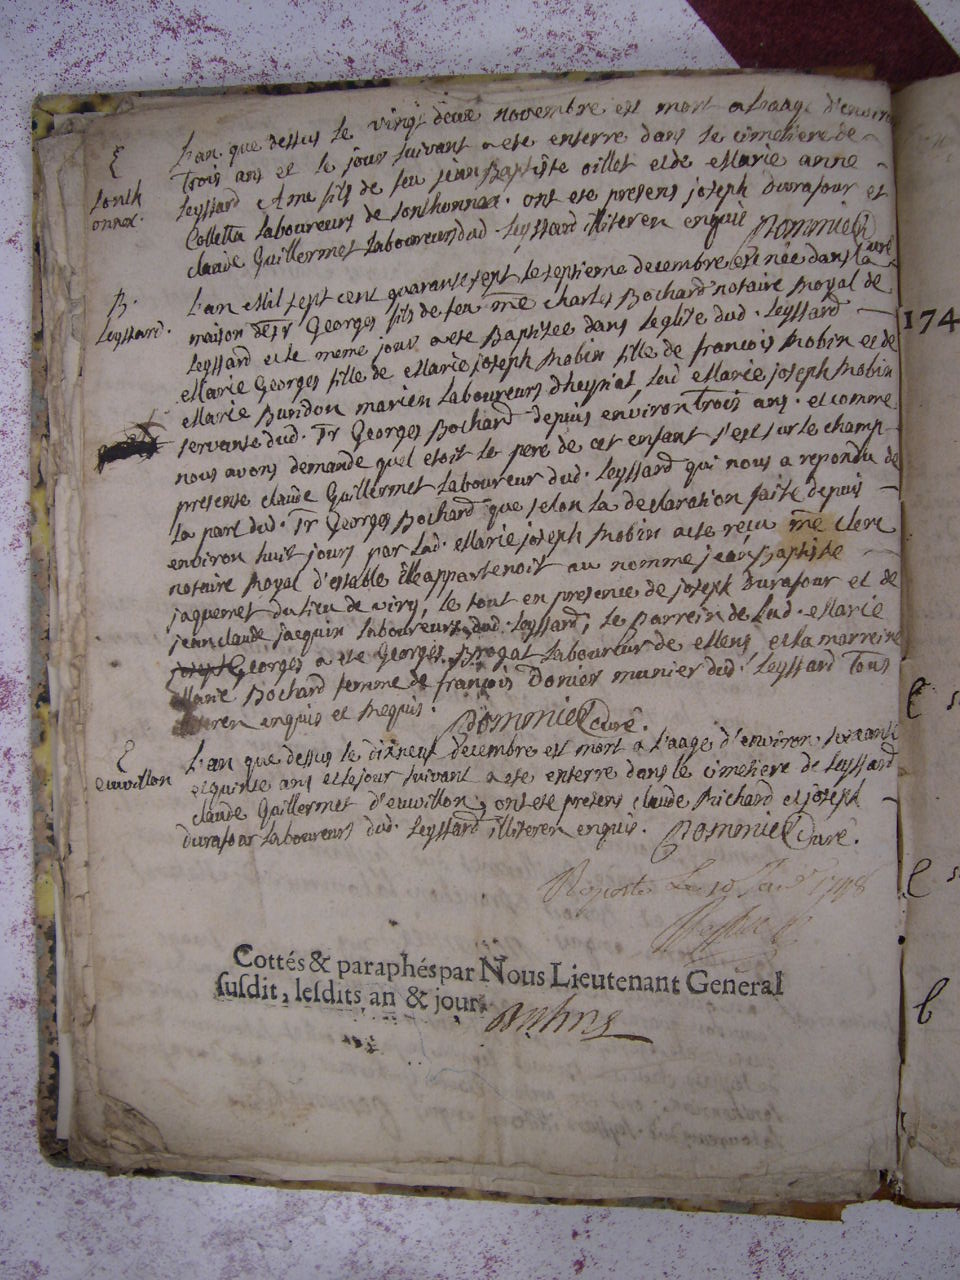 E
Sonth
onnax.
L'an que dessus le vingt deux novembre est mort a l'aage d'environ
trois ans et le jour suivant a ete enterre dans le cimetiere de
Leyssard Ame fils de feu jean Baptiste oillet et de Marie anne
Colletta Laboureurs de Sonthonnax. ont ete presens joseph durafour et
claude Guillermet Laboureurs dud. Leyssard illiteren enquis Dommier Curé
B.
Leyssard.
L'an Mil sept cent quarante sept le septieme decembre est née dans la
maison de Sr Georges fils de feu me Charles Bochard notaire Royal de
Leyssard et le meme jour a ete Baptisee dans leglise dud. Leyssard
Marie Georges fille de Marie joseph Mobin fille de francois Mobin et de
Marie Bundon marien Laboureurs d'heyriat, Lad Marie joseph Mobin
servante dud. Sr Georges Bochard depuis environ trois ans. et comme
nous avons demande quel etoit le pere de cet enfant s'est sur le champ
presente claude Guillermet Laboureur dud. Leyssard qui nous a repondu de
la part dud. Sr Georges Bochard que selon la declaration faite depuis
environ huit jours par Lad. Marie joseph Mobin acte reçu me Clerc
notaire Royal d'estable ille appartenoit au nomme jean Baptiste
jaquemet du lieu de viry, le tout en presence de joseph durafour et de
jean claude jacquin Laboureurs dud. Leyssard; le Parrein de Lad. Marie
Georges a ete Georges Brogat Laboureur de Mens et la marreine
Marie Bochard femme de françois Donier munier dud. Leyssard tous
illiteren enquis et Requis.
Dommier Curé.
E
euvillon
L'an que dessus le dixneuf decembre est mort a l'aage d'environ soixante
et quinze ans et le jour suivant a ete enterre dans le cimetiere de Leyssard
claude Guillermet d'euvillon, ont ete presens claude Richard et joseph
durafour Laboureurs dud. Leyssard illiteren enquis. Dommier Curé.
Le 10 1748
Cottés & paraphés par Nous Lieutenant General
susdit, lesdits an & jour.
174